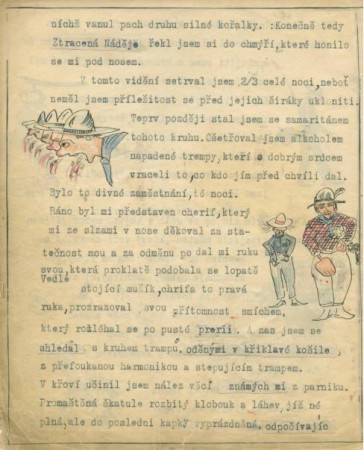 nichž vanul pach druhu silné kořalky. :Konečně tedy
Ztracená Náděje řekl jsem si do chmýří, které honilo
se mi pod nosem.
V tomto vidění setrval jsem 2/3 celé noci, neboť
neměl jsem příležitost se před jejich čiráky ukliniti.
Teprv později stal jsem se samaritánem
tohoto kruhu. Ošetřoval jsem alkoholem
napadené trempy, kteří s dobrým srdcem
vraceli to, co kdo jim před chvílí dal.
Bylo to divné zaměstnání, té noci.
Ráno byl mi představen cherif, který
mi se slzami v nose děkoval za sta-
tečnost mou a za odměnu po dal mi ruku
svou, která proklatě podobala se lopatě
Vedle
stojící mužík, chrifa to pravá
ruka, prozrazoval svou přítomnost smíchem,
který rozléhal se po pusté prerii. A zas jsem se
shledal s kruhem trampů, oděnými v křiklavé košile,
s přefoukanou harmonikou a stepujícím trampem.
V křoví učinil jsem nález věcí známých mi z parníku.
Promaštěná škatule rozbitý klobouk a láhev, již né
plná, ale do poslední kapky vyprázdněná, odpočívajíc